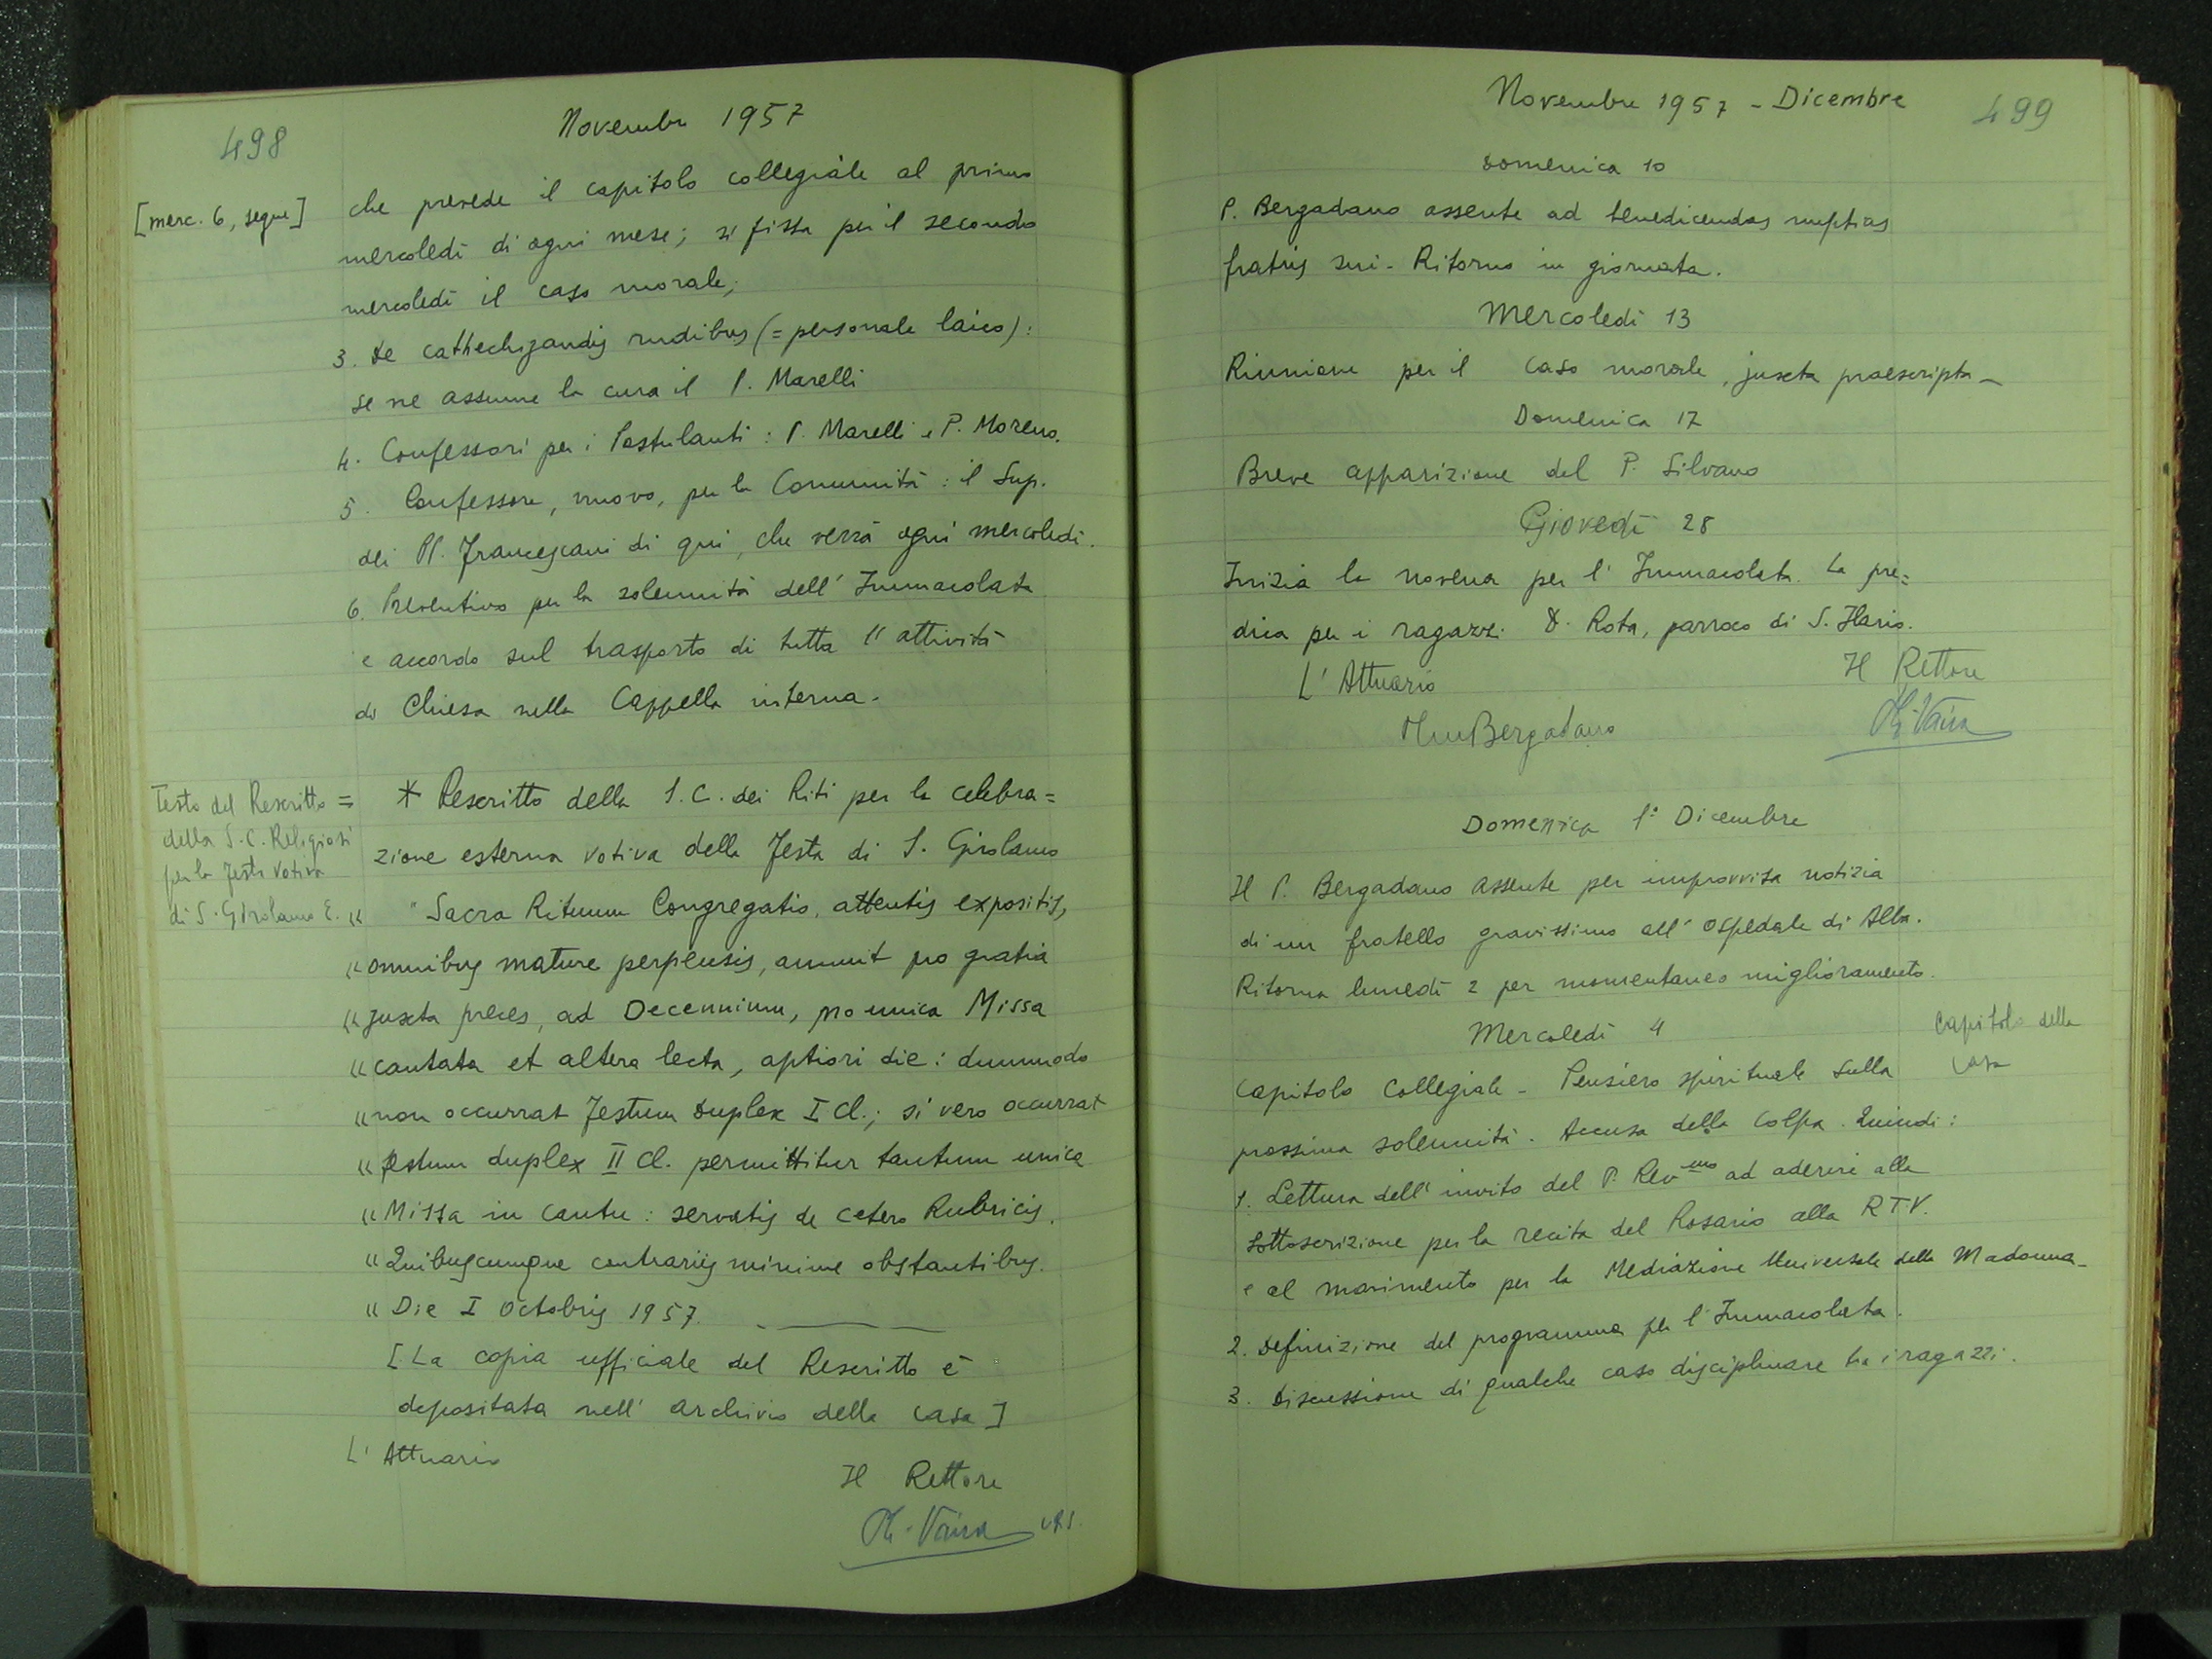 498
Novembre 1957
[merc. 6, segue]
che prevede il capitolo collegiale al primo
mercoledì di ogni mese; si fissa per il secondo
mercoledì il caso morale;
3. De cathechizandis rudibus (= personale laico):
se ne assume la cura il P. Marelli
4. Confessori per i Postulanti: P. Marelli e P. Moreno.
5. Confessore, nuovo, per la Comunità: il Sup.
dei PP. Francescani di qui, che verrà ogni mercoledì.
6. Preventivo per la solennità dell'Immacolata
e accordo sul trasporto di tutta l'attività
di Chiesa nella Cappella interna.
Testo del Rescritto =
della S.C. Religiosi
per la festa votiva
di S. Girolamo E.
* Rescritto della S.C. dei Riti per la celebra=
zione esterna votiva della Festa di S. Girolamo
« "Sacra Rituum Congregatio, attentis expositis,
« omnibus mature perpensis, annuit pro gratia
« juxta preces, ad Decennium, pro unica Missa
« cantata et altera lecta, aptiori die: dummodo
« non occurrat Festum Duplex I Cl.; si vero occurrat
« festum duplex II Cl. permittitur tantum unica
« Missa in cantu: servatis de cetero Rubricis.
« Quibuscumque contrariis minime obstantibus.
« Die I Octobris 1957.
[La copia ufficiale del Rescritto è
depositata nell'archivio della casa]
L'Attuario
Il Rettore
Vaira crs.
Novembre 1957 - Dicembre
499
Domenica 10
P. Bergadano assente ad benedicendas nuptias
fratris sui - Ritorno in giornata.
Mercoledì 13
Riunione per il caso morale, juxta praescripta -
Domenica 17
Breve apparizione del P. Silvano
Giovedì 28
Inizia la novena per l'Immacolata. La pre=
dica per i ragazzi D. Rota, parroco di S. Ilario.
L'Attuario
Il Rettore
Bergadano
Vaira
Domenica 1° Dicembre
Il P. Bergadano assente per improvvisa notizia
di un fratello gravissimo all'Ospedale di Alba.
Ritorna lunedì 2 per momentaneo miglioramento.
Mercoledì 4
Capitolo della
casa
Capitolo Collegiale - Pensiero spirituale sulla
prossima solennità. Accusa della Colpa. Quindi:
1. Lettura dell'invito del P. Rev.mo ad aderire alla
sottoscrizione per la recita del Rosario alla R.T.V.
e al movimento per la Mediazione Universale della Madonna -
2. Definizione del programma per l'Immacolata.
3. Discussione di qualche caso disciplinare tra i ragazzi.